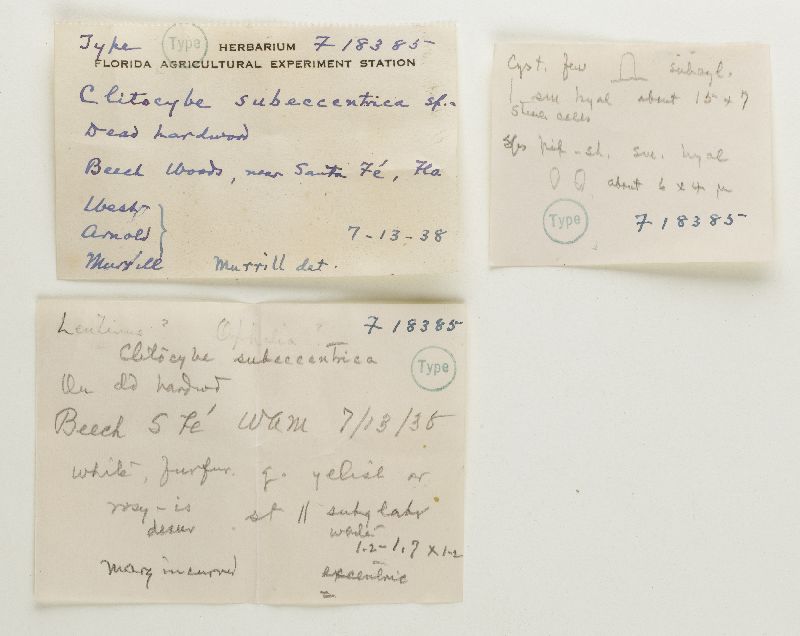 Type Type HERBARIUM F 18385
FLORIDA AGRICULTURAL EXPERIMENT STATION
Clitocybe subeccentrica sp.
Dead hardwood
Beech Woods, near Santa Fé, Fla
West
Arnold
Murrill
7-13-38
Murrill det.
Cyst. few subcyl.
sm hyal about 15 x 7
hyal
about 6 x 4 µ
Type F 18385
Lentinus? Omphalia? F 18385
Clitocybe subeccentrica
Type
On dd hardwd
Beech S Fé WAM 7/13/38
white, furfur. g. yelish or
rosy-is st || subglabr
desur
1.2-1.7 x 1.2
Marg incurved excentric